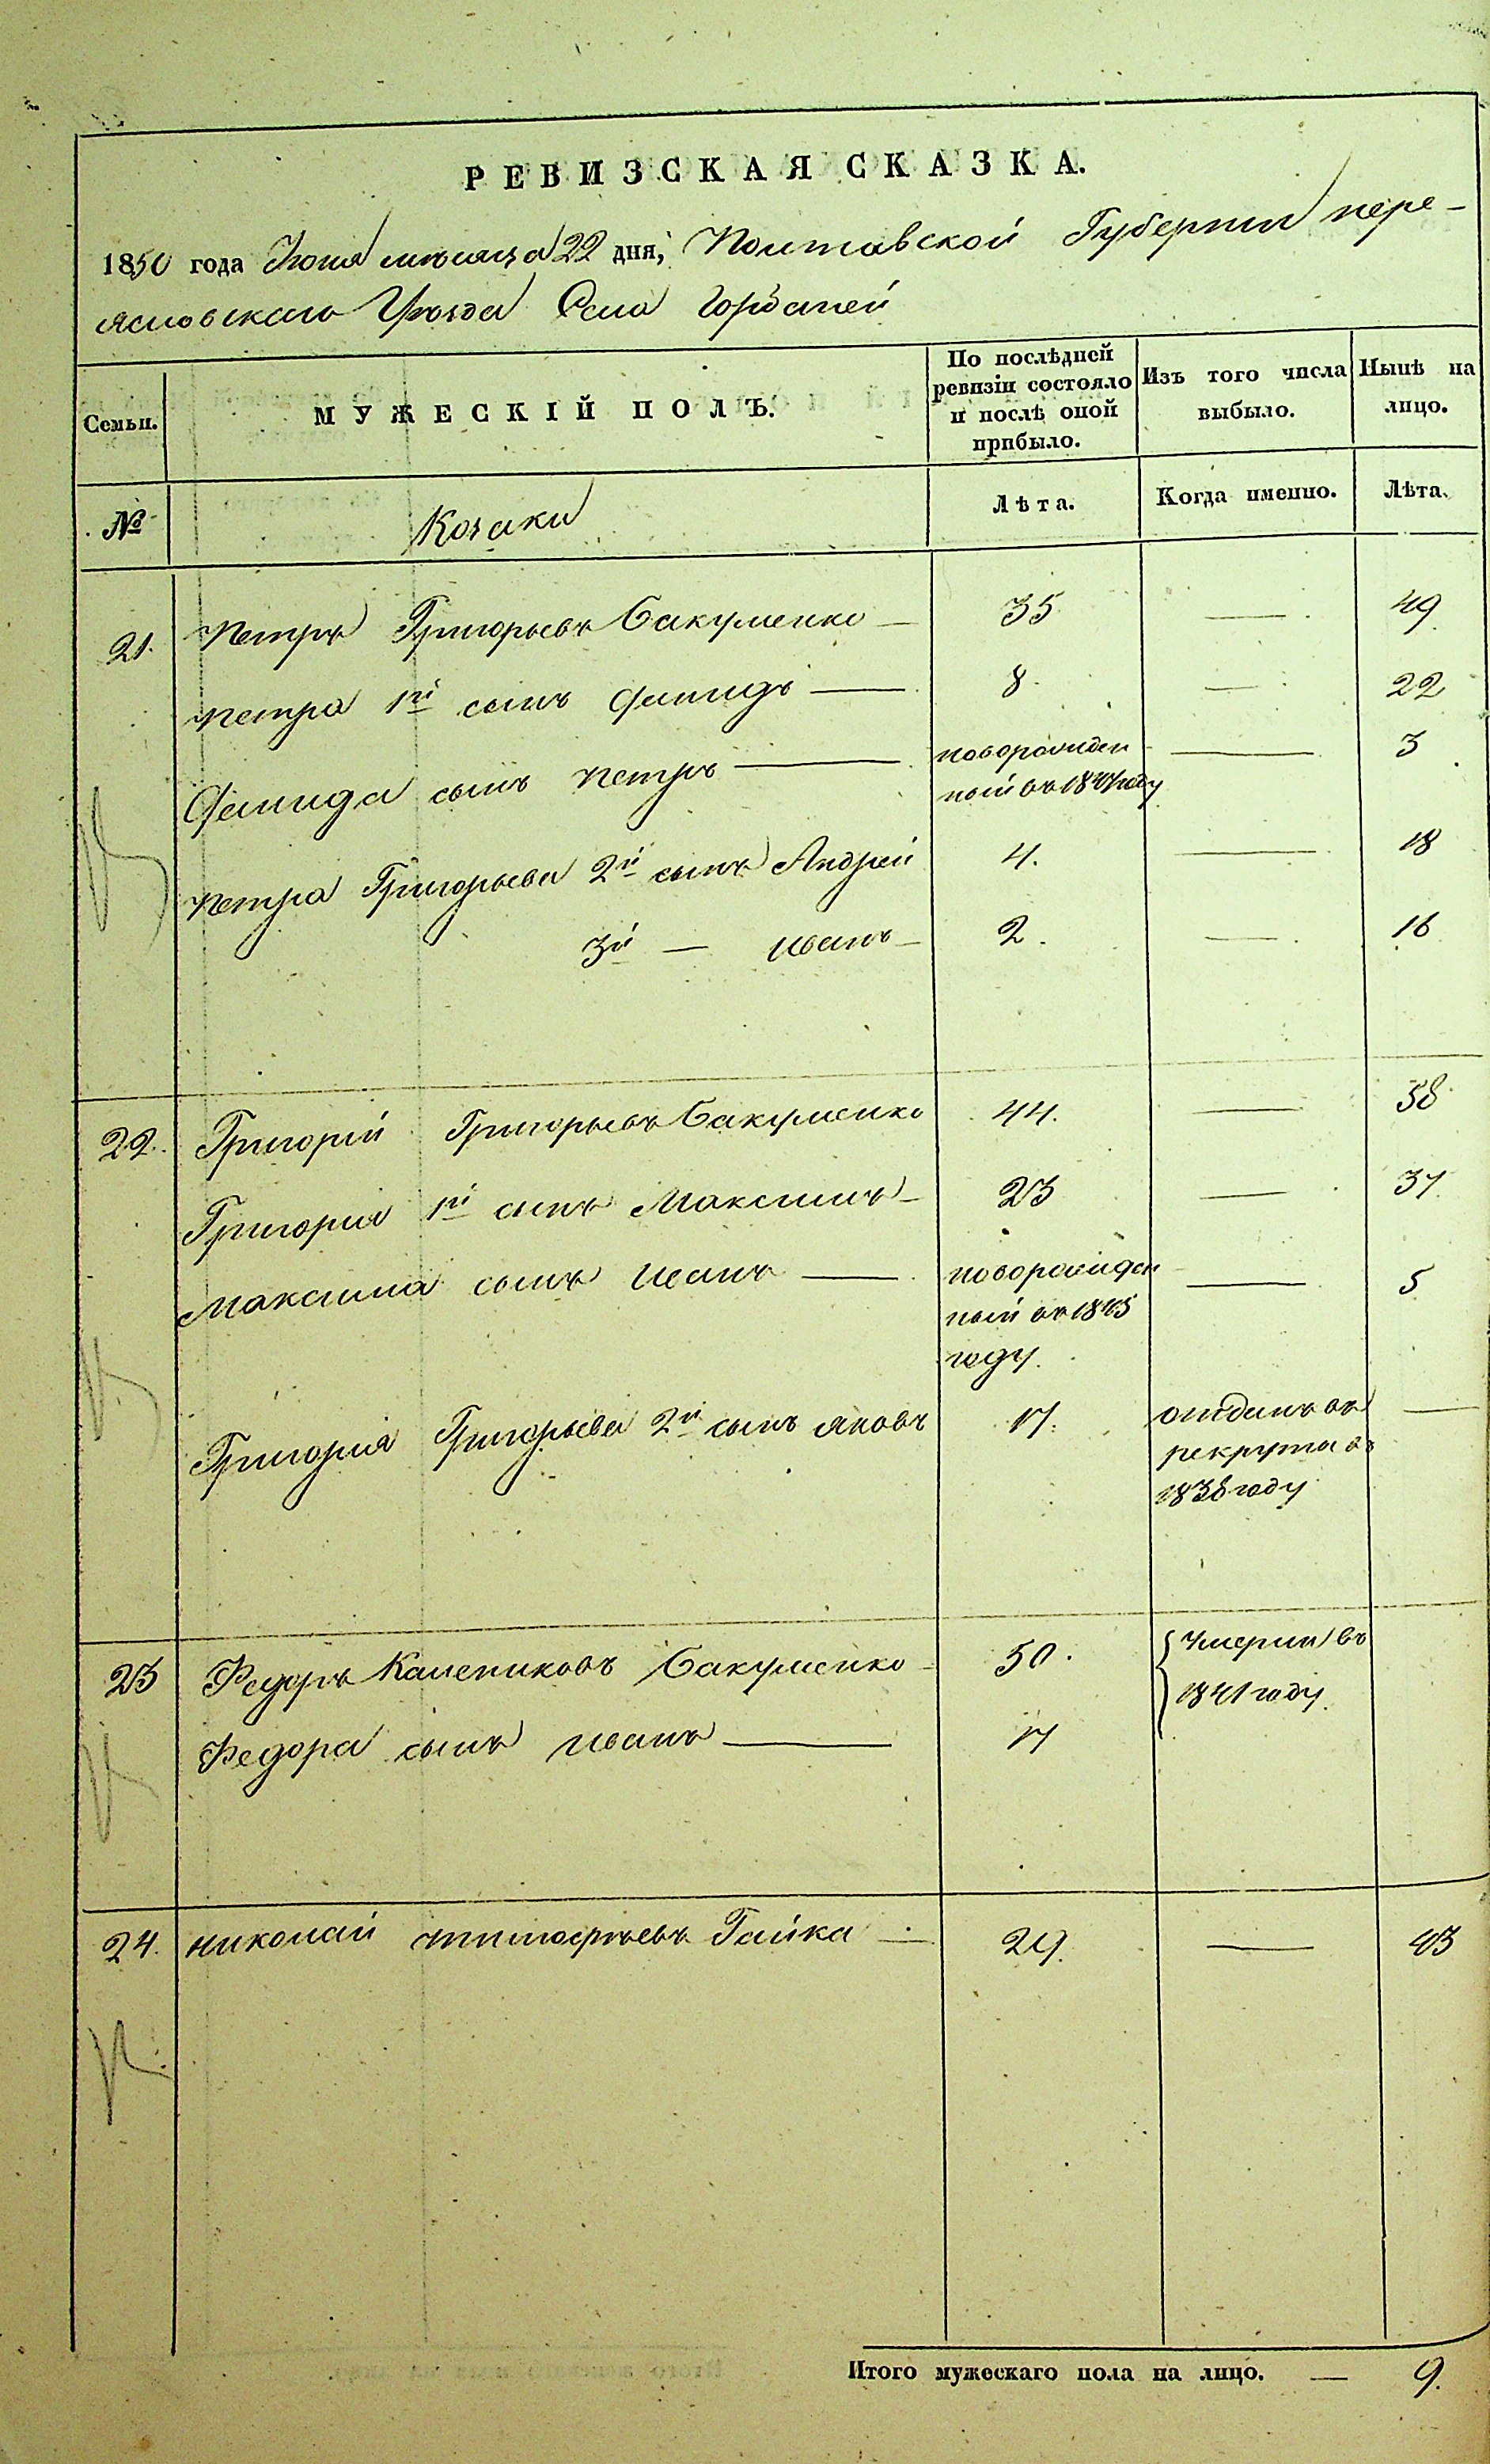 РЕВИЗСКАЯ СКАЗКА.
1850 года Июня месяца 22 дня, Полтавской Губернии пере-
ясловскаго Уезда Села Горбаней
Семьи. МУЖЕСКІЙ ПОЛЪ. По послѣдней ревизіи состояло и послѣ оной прибыло. Изъ того числа выбыло. Нынѣ на лицо.
№ Козаки Лѣта. Когда именно. Лѣта.
21. Петръ Григорьевъ Бакуменко — 35 — 49
Петра 1й сынъ Демидъ — 8. — 22
Демида сынъ Петръ — новорожден — 3
ный въ 1847 году
Петра Григорьева 2й сынъ Андрей 4. — 18
3й — Иванъ — 2. — 16
22. Григорій Григорьевъ Бакуменко 44. — 58
Григорія 1й сынъ Максимъ — 23 — 37
Максима сынъ Иванъ — новорожден — 5
ный въ 1845
году.
Григорія Григорьева 2й сынъ Яковъ 17. отданъ въ —
рекруты въ
1838 году
23 Федоръ Калениковъ Бакуменко — 50. Умерли въ
1841 году.
Федора сынъ Иванъ — 17
24. Николай Тимофѣевъ Гайка — 29. — 43
Итого мужескаго пола на лицо. — 9.